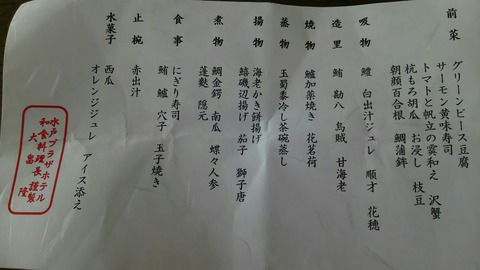 前菜
グリーンピース豆腐
サーモン黄味寿司
トマトと帆立の雲和え 沢蟹
杭もろ胡瓜 お浸し 枝豆
朝顔百合根 鯛蒲鉾
吸物
鱧 白出汁ジュレ 順才 花穂
造里
鮪 勘八 烏賊 甘海老
焼物
鱸加薬焼き 花茗荷
蒸物
玉蜀黍冷し茶碗蒸し
揚物
海老かき餅揚げ
鱚磯辺揚げ 茄子 獅子唐
煮物
鯛金鍔 南瓜 蝶々人参
蓬麩 隠元
食事
にぎり寿司
鮪 鱸 穴子 玉子焼き
止椀
赤出汁
水菓子
西瓜
オレンジジュレ アイス添え
水戸プラザホテル
和食料理長 謹製
大畠 隆